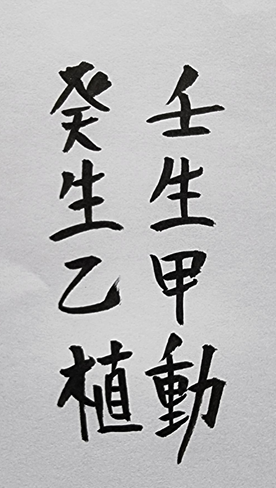 壬生甲動
癸生乙植